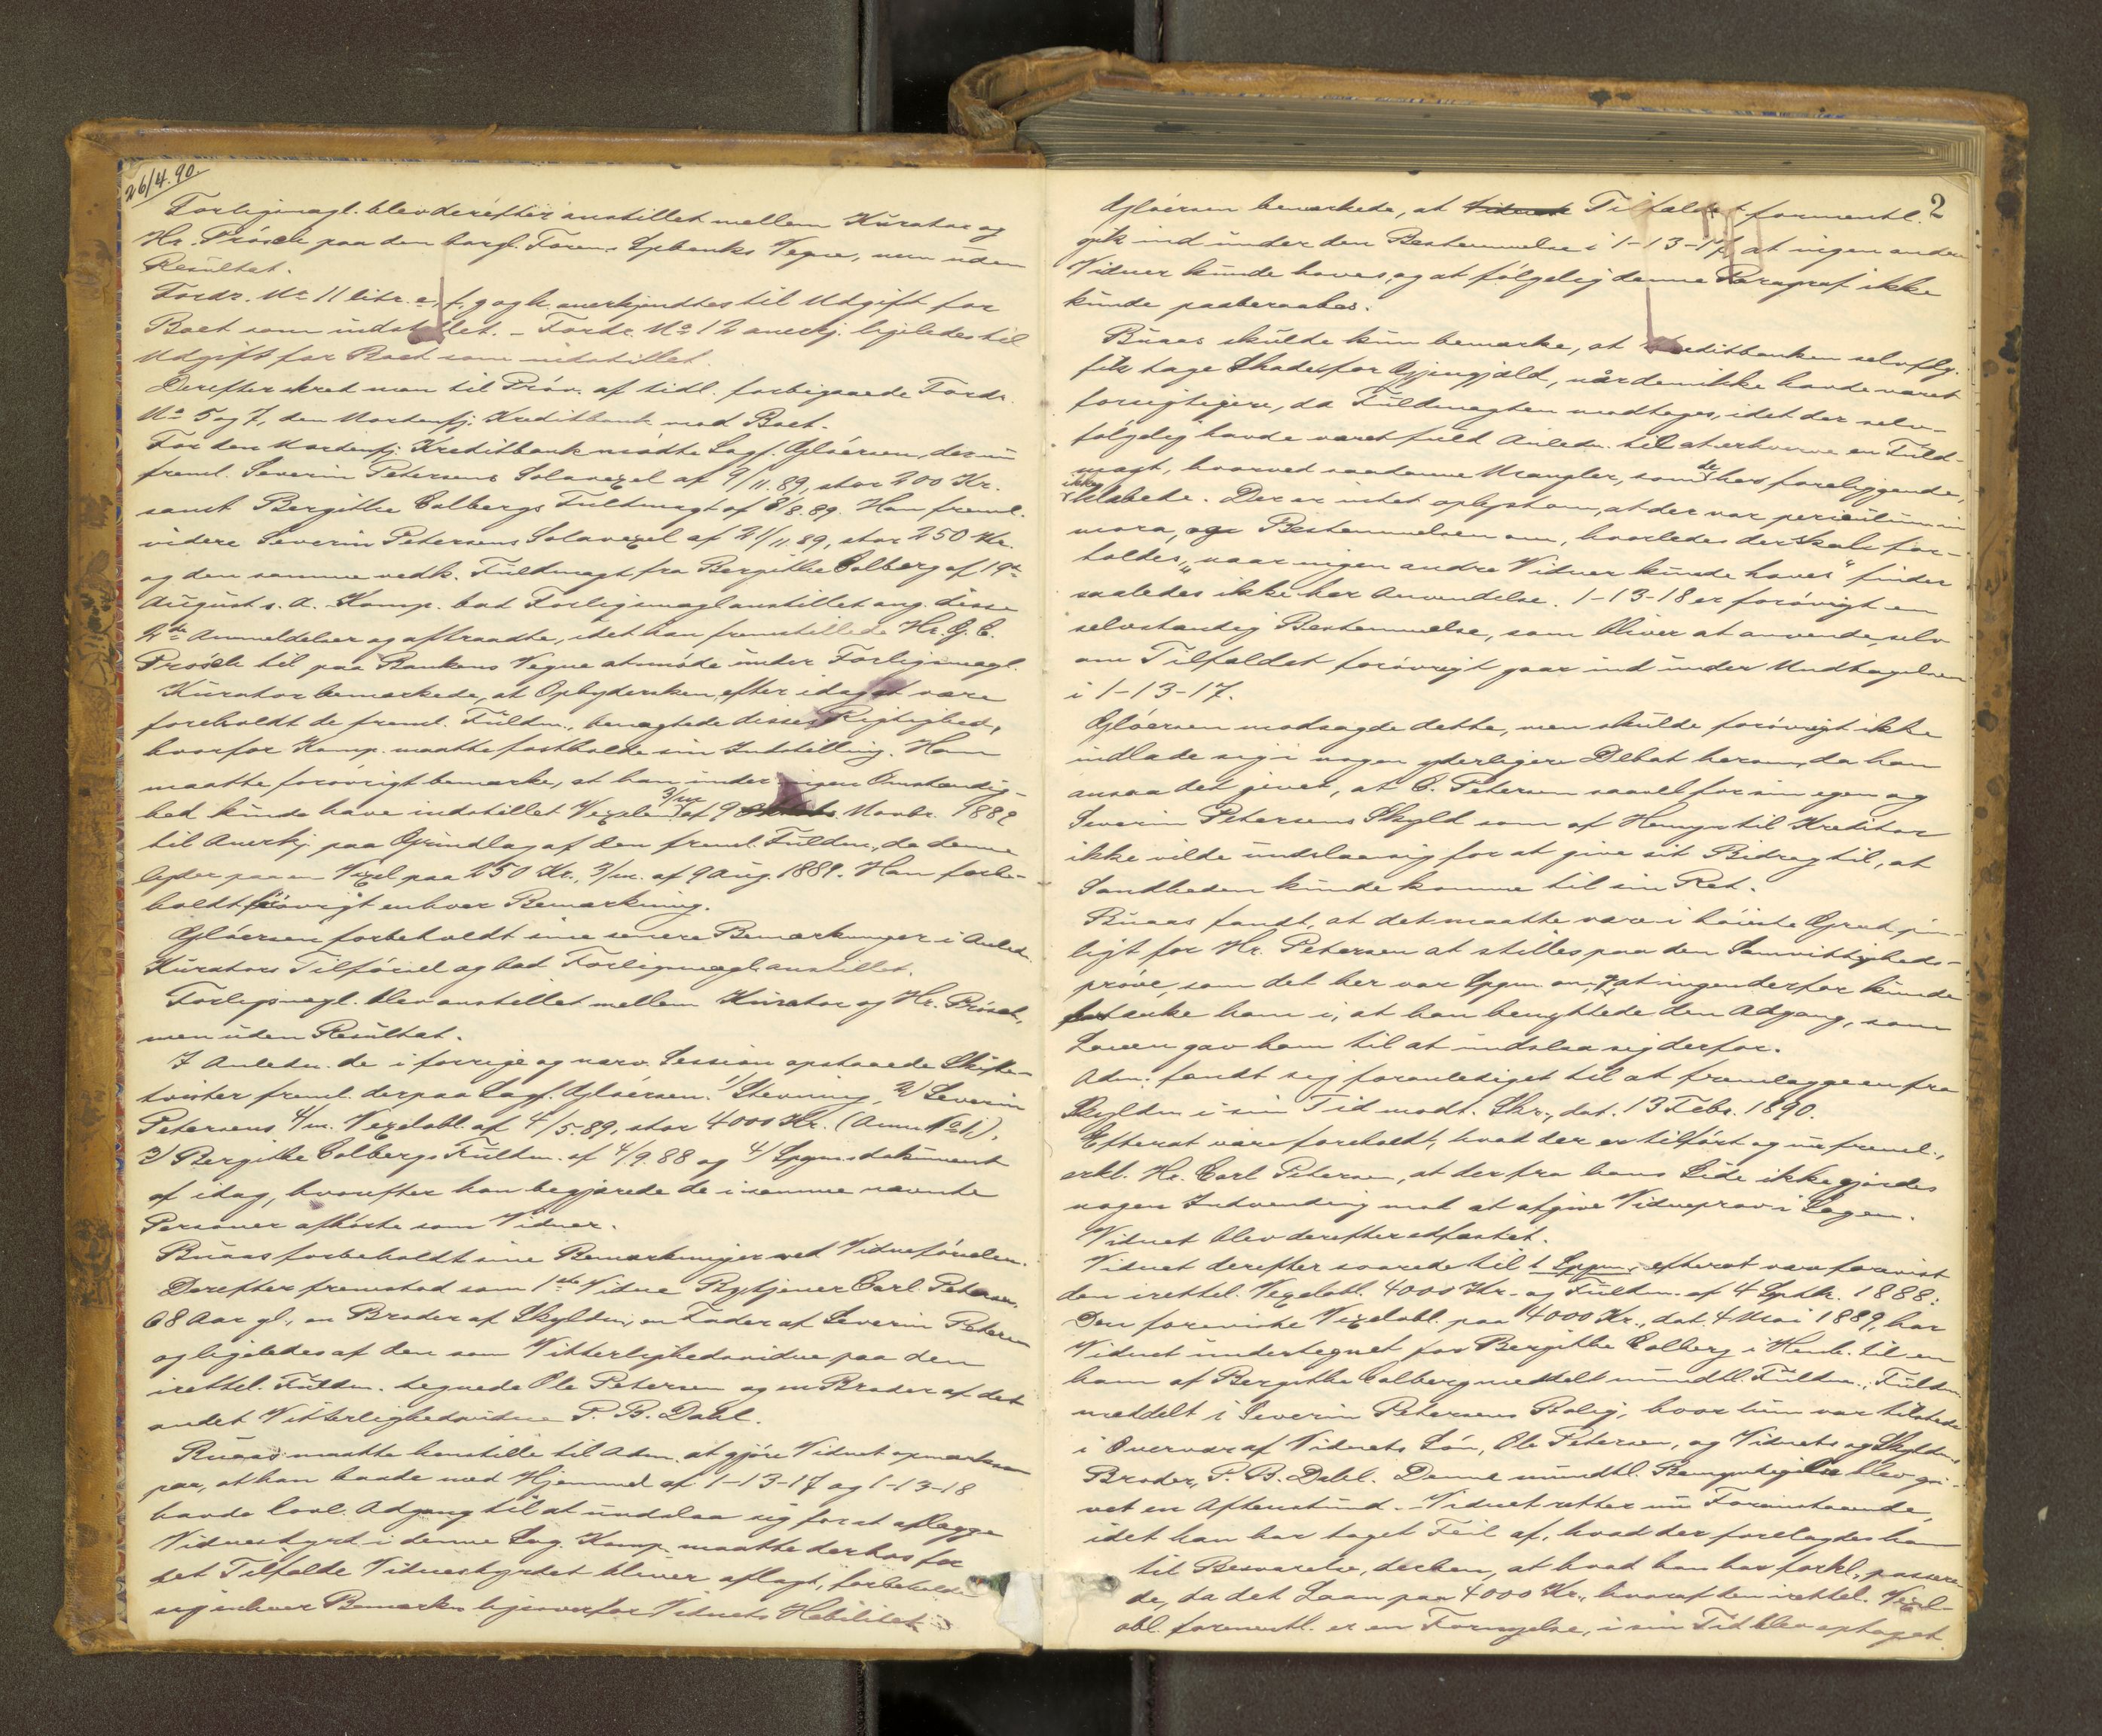 26/4.90.
Forligsmægl. blev derefter anstillet mellem Kurator og
Hr. Prösch paa den borgl. Foren. Spbanks Vegne, men uden
Resultat.
Fordr. No 11 litr. e, f, g og h anerkjendtes til Udgift for
Boet som indstillet. – Fordr. No 12 anerkj. ligeledes til
Udgift for Boet som indstillet.
Derefter skred man til Pröv. af tidl. forbigaaede Fordr.
No 5 og 7, den Nordenfj. Kreditbank mod Boet.
For den Nordenfj. Kreditbank mødte Sagf. Glöersen, der nu
freml. Severin Petersens Solavexel af 9/11.89, stor 200 Kr.
samt Bergithe Colbergs Fuldmagt af 8/8.89. Han freml.
videre Severin Petersens Solavexel af 21/11.89, stor 250 Kr.
og den samme vedk. Fuldmagt fra Bergithe Colberg af 19de
August s. A. Komp. bad Forligsmægl anstillet ang. disse
2de Anmeldelser og aftraadte, idet han fremstillede Hr. G. C.
Prösch til paa Bankens Vegne at møde under Forligsmægl.
Kurator bemærkede, at Opbydersken, efter idag at være
foreholdt de freml. Fuldm., benægtede disses Rigtighed,
hvorfor Komp. maatte fastholde sin Indstilling. Han
maatte forövrigt bemærke, at han under ingen Omstændig-
hed kunde have indstillet Vexelen 3/m af 9 Novbr. 1889
til Anerkj. paa Grundlag af den freml. Fuldm., da denne
lyder paa en Vexel paa 250 Kr., 3/m. af 9 Aug. 1889. Han forbe-
holdt forövrigt enhver Bemærkning.
Glöersen forbeholdt sine senere Bemærkninger i Anledn.
Kurators Tilförsel og bad Forligsmægl anstillet.
Forligsmægl. blev anstillet mellem Kurator og Hr. Prösch,
men uden Resultat.
I Anledn. de i forrige og nærv. Session opstaaede Skifte-
tvister freml. derpaa Sagf. Glöersen: 1/ Stevning, 2/ Severin
Petersens 4/m. Vexelobl. af 4/5.89, stor 4000 Kr. (Anm No 1),
3/ Bergithe Colbergs Fuldm. af 4/9.88 og 4/ Spgmsdokument
af idag, hvorefter han begjærede de i samme nævnte
Personer afhörte som Vidner.
Buaas forbeholdt sine Bemærkninger ved Vidneförselen.
Derefter fremstod som 1ste Vidne Carl Petersen,
68 Aar gl., en Broder af Skyldn., en Fader af Severin Petersen
og ligeledes af den som Vitterlighedsvidne paa den
irettel. Fuldm. tegnede Ole Petersen og en Broder af det
andet Vitterlighedsvidne P. B. Dahl.
Buaas maatte henstille til Adm. at gjöre Vidnet opmærksom
paa, at han havde med Hjemmel af 1-13-17 og 1-13-18
havde lovl. Adgang til at undslaa sig for at aflægge
Vidnesbyrd i denne Sag. Komp. maatte derhos for
det Tilfælde Vidnesbyrdet bliver aflagt, forbeholde
sig enhver Bemærkn. ligeoverfor Vidnets Habilitet.
2
Glöersen bemærkede, at Tilfældet formentl.
gik ind under den Bestemmelse i 1-13-17, at ingen andre
Vidner kunde haves, og at fölgelig denne Paragraf ikke
kunde paaberaabes.
Buaas skulde kun bemærke, at Kreditbanken selvflg.
fik tage Skade for Gjengjæld, når den ikke havde været
forsigtigere, da Fuldmagten modtoges, idet der selv-
fölgelig havde været fuld Anledn. til at erhverve en Fuld-
magt, hvorved saadanne Mangler, som de her foreliggende,
ikke klæbede. Der er intet oplyst om, at der var periculum in
mora, og Bestemmelsen om, hvorledes der skal for-
holdes, „naar ingen andre Vidner kunde haves" finder
saaledes ikke her Anvendelse. 1-13-18 er forövrigt en
selvstændig Bestemmelse, som bliver at anvende, selv
om Tilfældet forövrigt gaar ind under Undtagelsen
i 1-13-17.
Glöersen modsagde dette, men skulde forövrigt ikke
indlade sig i nogen yderligere Debat herom, da han
ansaa det givet, at C. Petersen saavel for sin egen og
Severin Petersens Skyld som af Hensyn til Kreditor
ikke vilde undslaa sig for at give sit Bidrag til, at
Sandheden kunde komme til sin Ret.
Buaas fandt, at det maatte være i höieste Grad pin-
ligt for Hr. Petersen at stilles paa den Samvittigheds-
pröve, som det her var Spgm om, at ingen derfor kunde
fortænke ham i, at han benyttede den Adgang, som
Loven gav ham til at undslaa sig derfor.
Adm. fandt sig foranlediget til at fremlægge en fra
Skyldn i sin Tid modt. Skr., dat. 13 Febr. 1890.
Efterat være foreholdt, hvad der er tilfört og nu freml.,
erkl. Hr. Carl Petersen, at der fra hans Side ikke gjördes
nogen Indvending mod at afgive Vidneprov i Sagen.
Vidnet blev derefter edfæstet.
Vidnet derefter svarede til 1 Spgm., efterat være forevist
den irettel. Vexelobl. 4000 Kr. og Fuldm. af 4 Septb. 1888:
Den foreviste Vexelobl. paa 4000 Kr., dat. 4 Mai 1889, har
Vidnet undertegnet for Bergithe Colberg i Henh. til en
ham af Bergithe Colberg meddelt mundtl. Fuldm., Fuldm
meddelt i Severin Petersens Bolig, hvor hun var tilstede
i Overvær af Vidnets Sön, Ole Petersen, og Vidnets og Skyldn
Broder, P. B. Dahl. Denne mundtl. Bemyndigelse blev gi-
vet en Aftenstund. Vidnet retter nu Foranstaaende,
idet han har taget Feil af, hvad der forelagdes ham
til Besvarelse, derhen, at hvad han har forkl., passere-
de, da det Laan paa 4000 Kr., hvoraf den irettel. Vexel-
obl. formentl. er en Fornyelse, i sin Tid blev optaget.